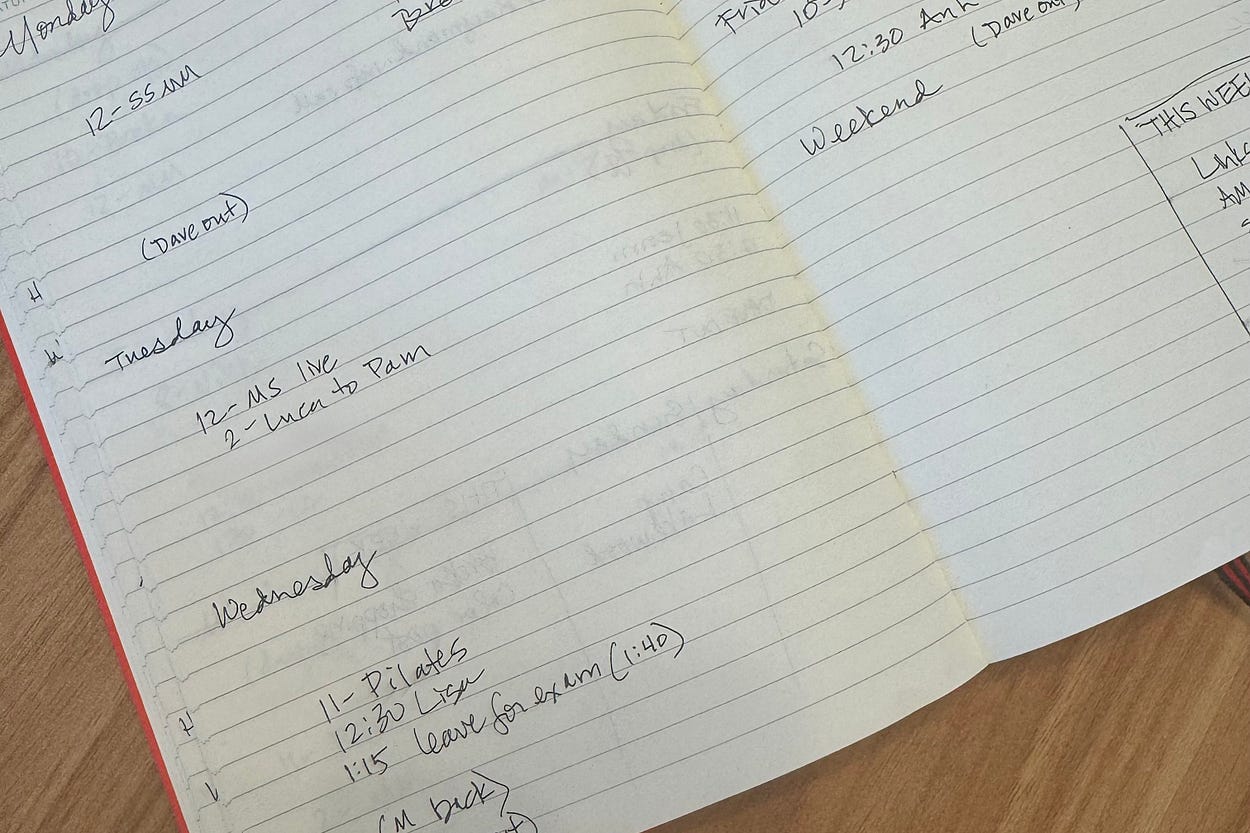 Monday
12 - SS
(Dave out)
H
Tuesday
12 - MS live
2 - Luca to Pam
Wednesday
11 - Pilates
12:30 Lisa
1:15 leave for exam (1:40)
(M back)
12:30 Anh
(Dave out)
Weekend
THIS WEE